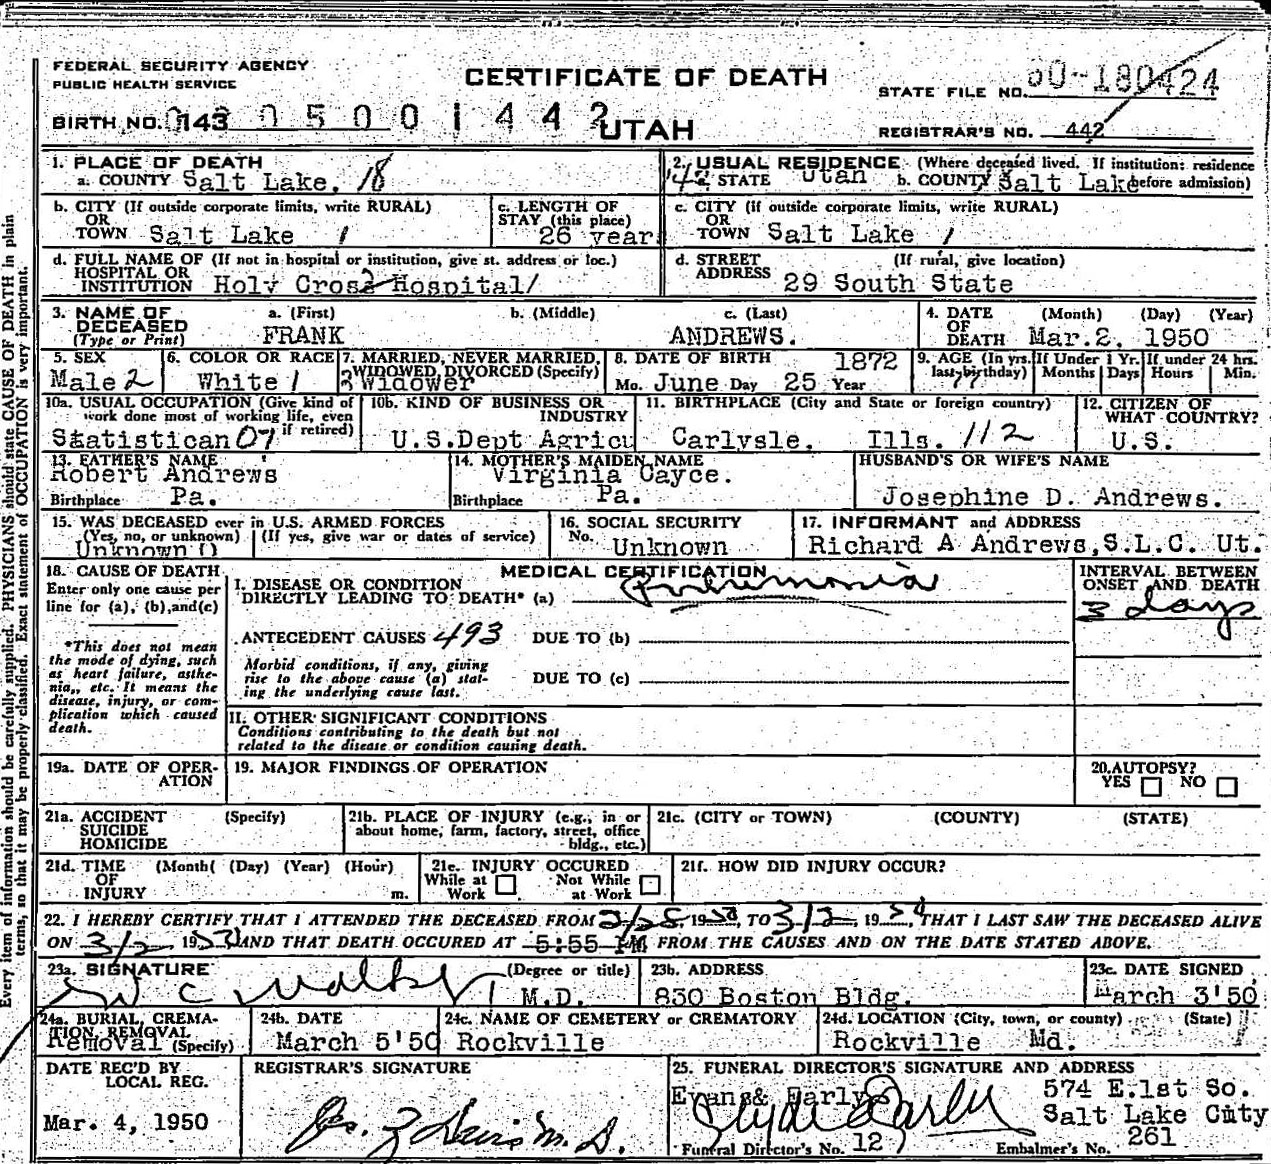 FEDERAL SECURITY AGENCY
PUBLIC HEALTH SERVICE
CERTIFICATE OF DEATH
STATE FILE NO. 50-180424
BIRTH NO. 143 0500 1442
UTAH
REGISTRAR'S NO. 442
Every item of information should be carefully supplied. PHYSICIANS should state CAUSE OF DEATH in plain
terms, so that it may be properly classified. Exact statement of OCCUPATION is very important.
1. PLACE OF DEATH
a. COUNTY Salt Lake. 18
2. USUAL RESIDENCE (Where deceased lived. If institution: residence
42 STATE Utah b. COUNTY Salt Lake before admission)
b. CITY (If outside corporate limits, write RURAL)
OR
TOWN Salt Lake 1
c. LENGTH OF
STAY (this place)
26 year
c. CITY (if outside corporate limits, write RURAL)
OR
TOWN Salt Lake 1
d. FULL NAME OF (If not in hospital or institution, give st. address or loc.)
HOSPITAL OR
INSTITUTION Holy Cross Hospital/
d. STREET (If rural, give location)
ADDRESS 29 South State
3. NAME OF a. (First) b. (Middle) c. (Last)
DECEASED
(Type or Print) FRANK ANDREWS.
4. DATE (Month) (Day) (Year)
OF
DEATH Mar.2, 1950
5. SEX
Male 2
6. COLOR OR RACE
White 1
7. MARRIED, NEVER MARRIED,
WIDOWED, DIVORCED (Specify)
3 Widower
8. DATE OF BIRTH 1872
Mo. June Day 25 Year
9. AGE (In yrs.
last birthday)
77
If Under 1 Yr.
Months Days
If under 24 hrs.
Hours Min.
10a. USUAL OCCUPATION (Give kind of
work done most of working life, even
if retired)
Statistican 07
10b. KIND OF BUSINESS OR
INDUSTRY
U.S.Dept Agricu
11. BIRTHPLACE (City and State or foreign country)
Carlysle, Ills. 112
12. CITIZEN OF
WHAT COUNTRY?
U.S.
13. FATHER'S NAME
Robert Andrews
Birthplace Pa.
14. MOTHER'S MAIDEN NAME
Virginia Cayce.
Birthplace Pa.
HUSBAND'S OR WIFE'S NAME
Josephine D. Andrews.
15. WAS DECEASED ever in U.S. ARMED FORCES
(Yes, no, or unknown) (If yes, give war or dates of service)
Unknown 0
16. SOCIAL SECURITY
No. Unknown
17. INFORMANT and ADDRESS
Richard A Andrews,S.L.C. Ut.
18. CAUSE OF DEATH
Enter only one cause per
line for (a), (b), and (c)
*This does not mean
the mode of dying, such
as heart failure, asthe-
nia,, etc. It means the
disease, injury, or com-
plication which caused
death.
MEDICAL CERTIFICATION
I. DISEASE OR CONDITION
DIRECTLY LEADING TO DEATH* (a) Pneumonia
ANTECEDENT CAUSES 493 DUE TO (b)
Morbid conditions, if any, giving
rise to the above cause (a) stat-
ing the underlying cause last.
DUE TO (c)
II. OTHER SIGNIFICANT CONDITIONS
Conditions contributing to the death but not
related to the disease or condition causing death.
INTERVAL BETWEEN
ONSET AND DEATH
3 days
19a. DATE OF OPER-
ATION
19. MAJOR FINDINGS OF OPERATION
20. AUTOPSY?
YES NO
21a. ACCIDENT (Specify)
SUICIDE
HOMICIDE
21b. PLACE OF INJURY (e.g., in or
about home, farm, factory, street, office
bldg., etc.)
21c. (CITY or TOWN) (COUNTY) (STATE)
21d. TIME (Month( (Day) (Year) (Hour)
OF
INJURY m.
21e. INJURY OCCURED
While at Not While
Work at Work
21f. HOW DID INJURY OCCUR?
22. I HEREBY CERTIFY THAT I ATTENDED THE DECEASED FROM 2/28, 1950, TO 3/2, 1950, THAT I LAST SAW THE DECEASED ALIVE
ON 3/2, 1950 AND THAT DEATH OCCURED AT 5:55 PM FROM THE CAUSES AND ON THE DATE STATED ABOVE.
23a. SIGNATURE (Degree or title)
W C Walker M.D.
23b. ADDRESS
830 Boston Bldg.
23c. DATE SIGNED
March 3'50
24a. BURIAL, CREMA-
TION, REMOVAL
Removal (Specify)
24b. DATE
March 5'50
24c. NAME OF CEMETERY or CREMATORY
Rockville
24d. LOCATION (City, town, or county) (State)
Rockville Md.
DATE REC'D BY
LOCAL REG.
Mar. 4, 1950
REGISTRAR'S SIGNATURE
M.D.
25. FUNERAL DIRECTOR'S SIGNATURE AND ADDRESS
Evans & Early 574 E.1st So.
Clyde Early Salt Lake City
Funeral Director's No. 12 Embalmer's No. 261